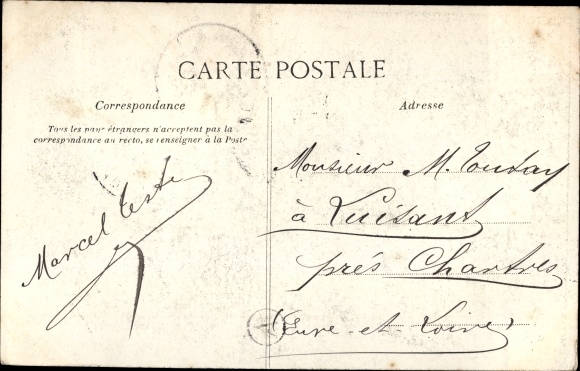 CARTE POSTALE
Correspondance
Tous les pays étrangers n'acceptent pas la
correspondance au recto, se renseigner à la Poste
Marcel Teste
Adresse
Monsieur M. Touday
à Luisant
près Chartres
(Eure-et-Loire)